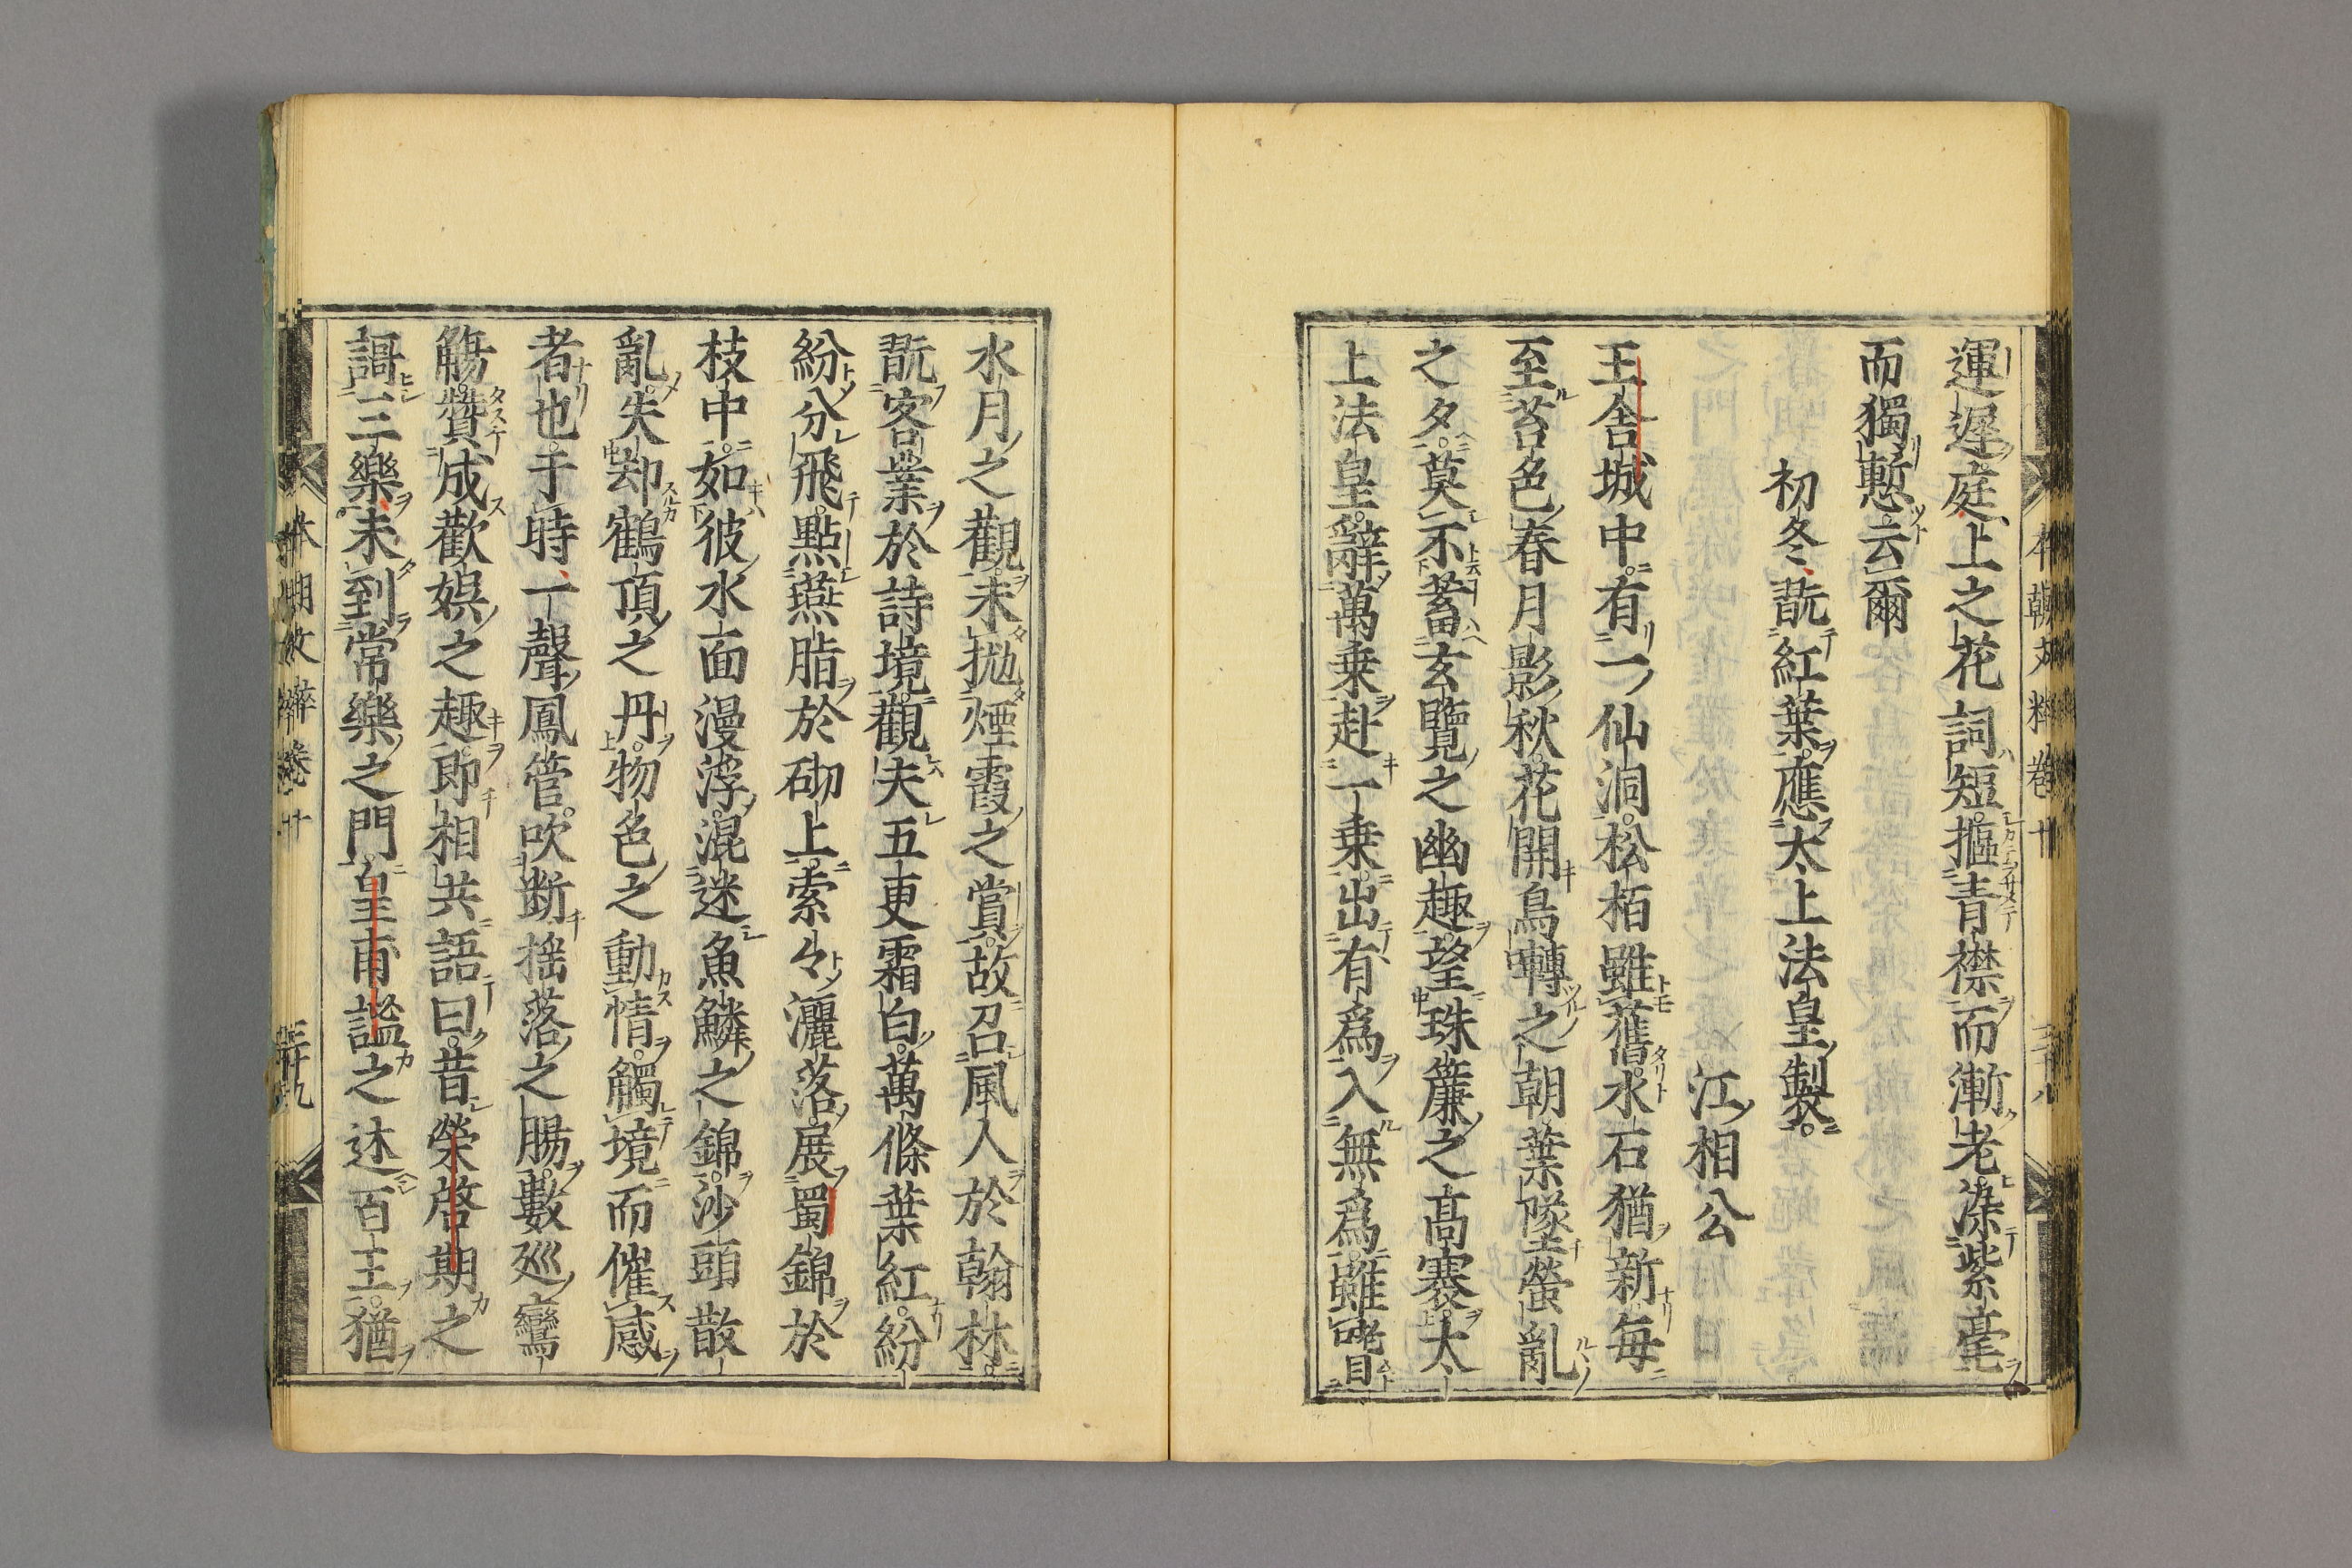 運遲庭上之花詞短摳青襟而漸老染紫毫
而獨慙云爾
初冬翫紅葉應太上法皇製
江相公
王舎城中有一仙洞松栢雖舊水石猶新毎
至苔色春月影秋花開鳥轉之朝葉墜螢亂
之夕莫不蓄玄覽之幽趣望珠簾之高褰太
上法皇辭萬乗赴一乗出有爲入無爲雖
水月之觀未拋煙霞之賞故召風人於翰林
翫客業於詩境觀夫五更霜白萬條葉紅紛
紛分飛點燕脂於砌上索々灑落展蜀錦於
枝中如彼水面漫浮混迷魚鱗之錦沙頭散
亂失却鶴頂之丹物色之動情觸境而催感
者也于時一聲鳳管吹断揺落之腸數廵鸞
觴賛成歡娯之趣即相共語曰昔榮啓期之
謌三樂未到常樂之門皇甫謐之述百王猶
本朝文粹卷十 三十八
本朝文粹卷十 三十九